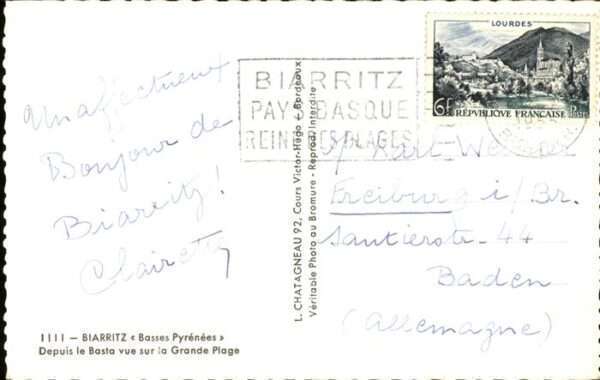 Un afectueux
Bonjour de
Biarritz!
1111 — BIARRITZ « Basses Pyrénées »
Depuis le Basta vue sur la Grande Plage
L. CHATAGNEAU 92, Cours Victor-Hugo - Bordeaux
Véritable Photo au Bromure - Reprod. Interdite
BIARRITZ
PAYS BASQUE
REINE DES PLAGES
LOURDES
6F
RÉPUBLIQUE FRANÇAISE
Postes
Karl-Werner
Freiburg i/Br.
44
Baden
(Allemagne)